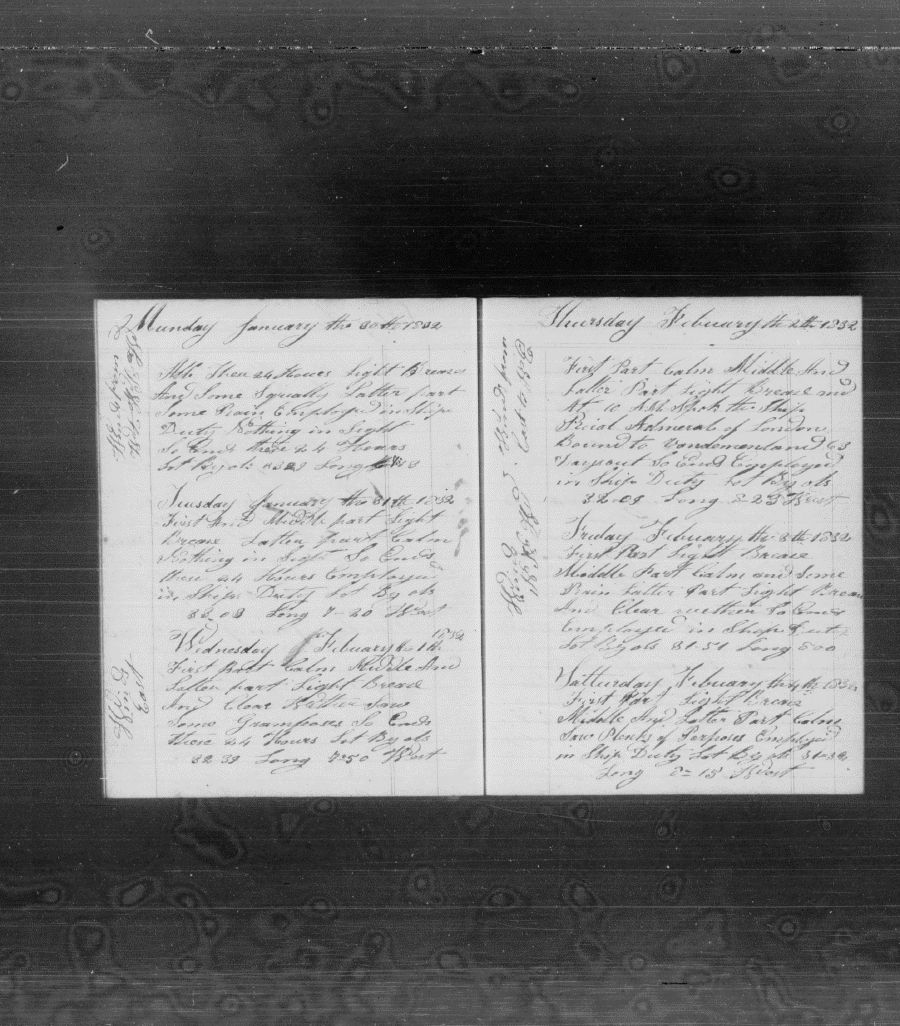 Munday January the 30th 1832
Wind from
All These 24 Hours Light Breas
And Some Squally Latter part
Some Rain Employed in Ships
Duty Nothing in Sight
So Ends these 24 Hours
Lat By ob Long
Tuesday January the 31th 1832
First And Middle part Light
Brease Latter part Calm
Nothing in Sight So Ends
these 24 Hours Employed
in Ships Duty Lat By ob
Long 7-20 West
Wednesday Febuary the 1th 1832
Wind
East
First Part Calm Middle And
Latter part Light Brease
And Clear Wether Saw
Some Grampses So Ends
these 24 Hours Lat By ob
32-39 Long 7-50 West
Thursday Febuary the 2th 1832
Wind from
East to
First Part Calm Middle And
Latter Part Light Brease and
At 10 AM Spok the Ship
Admerals of London
Bound to Vandemanland 63
Days out So Ends Employed
in Ship Duty Lat By ob
32-09 Long 8-23 West
Friday Febuary the 3th 1832
Wind
First Part Light Brease
Middle Part Calm and Some
Rain Latter Part Light Breas
And Clear wether So Ends
Employed in Ship Duty
Lat By ob 31-51 Long
Satturday Febuary the 4th 1832
First Part Light Brease
Middle And Latter Part Calm
Saw Plenty of Perposes Employed
in Ship Duty Lat By ob
Long 8-15 West